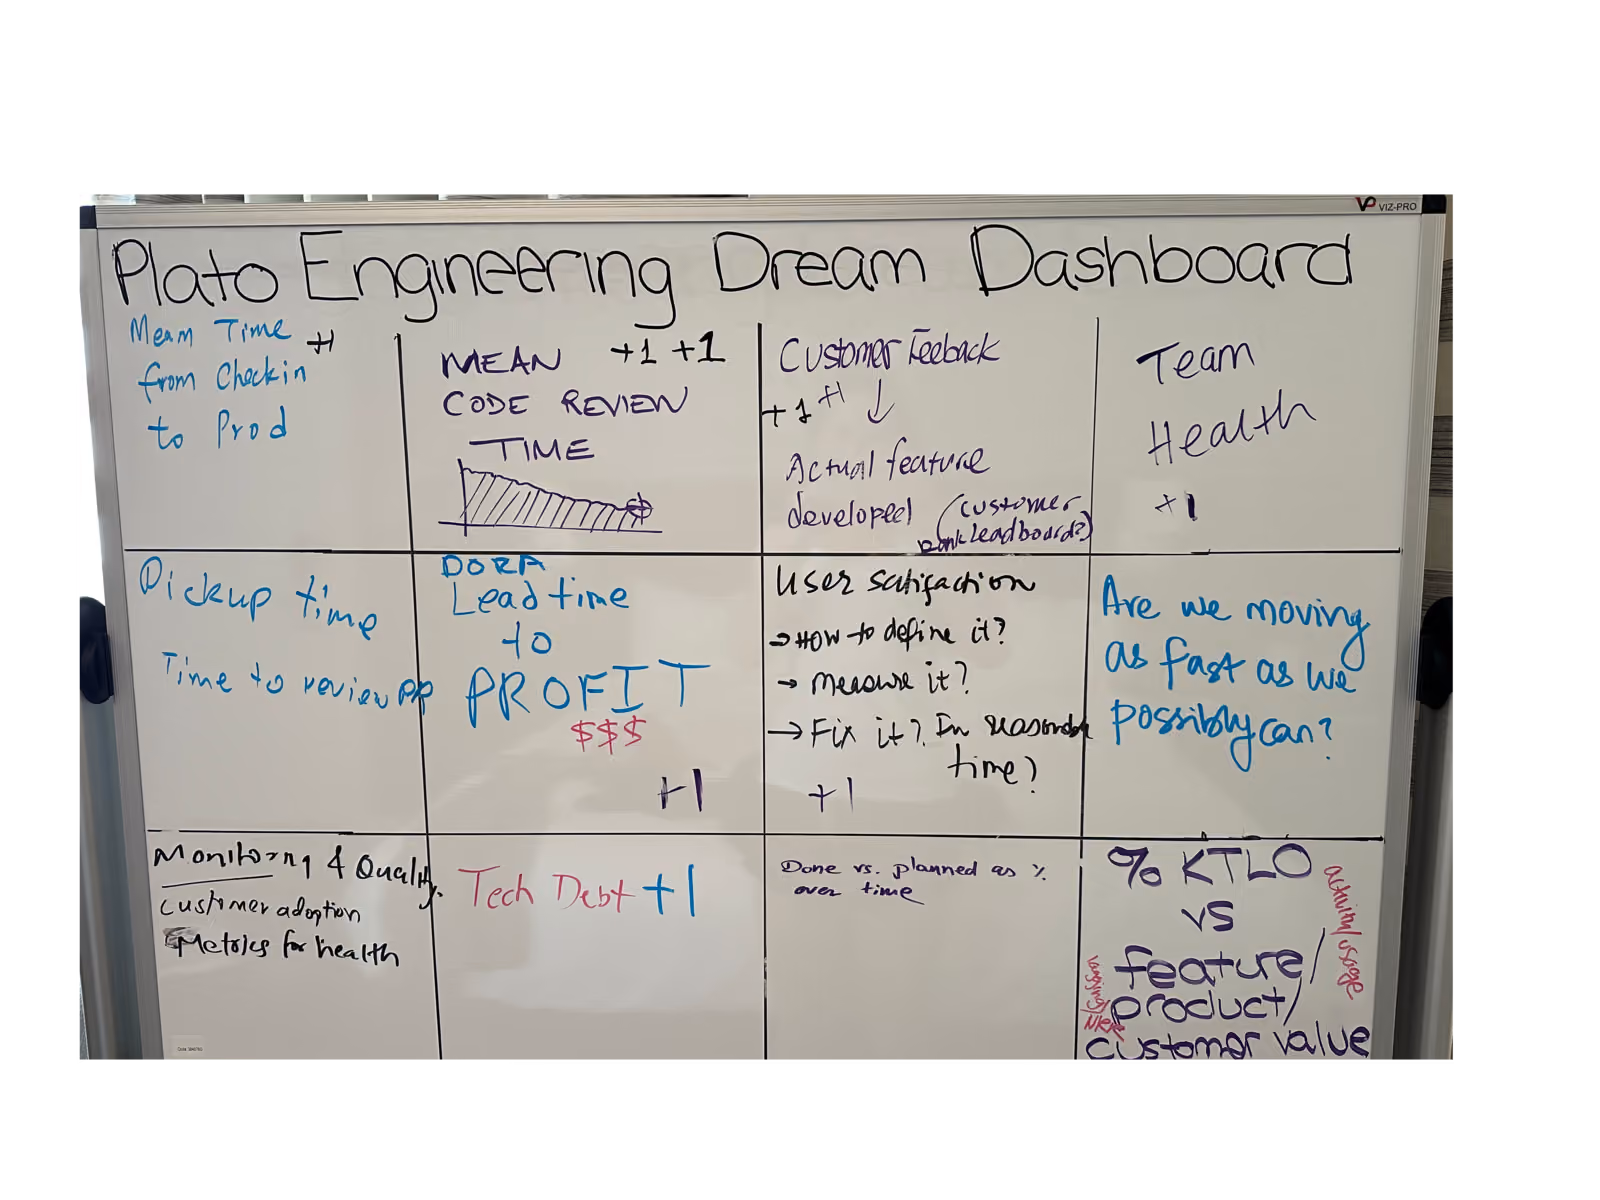 VP VIZ-PRO
Plato Engineering Dream Dashboard
Mean Time +1
from Checkin
to Prod
MEAN +1 +1
CODE REVIEW
TIME
Customer Feeback
+1 +1
Actual feature
developed (customer
rank leadboard?)
Team
Health
+1
Pickup time
Time to review PR
DORA
Lead time
to
PROFIT
$$$
+1
User satifaction
→ How to define it?
→ measure it?
→ Fix it? In
time?
+1
Are we moving
as fast as we
possibly can?
Monitoring & Quality
customer adoption
Metrics for health
Tech Debt +1
Done vs. planned as %
over time
% KTLO
vs
feature/
product/
customer value
activity/usage